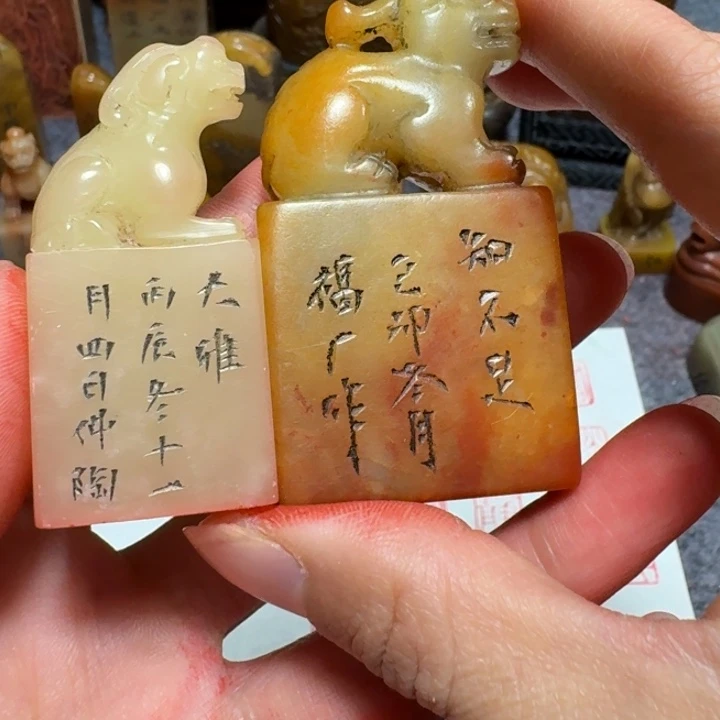 大雅
丙辰冬十一
月四日仲陶
知不足
己卯冬月
福厂作